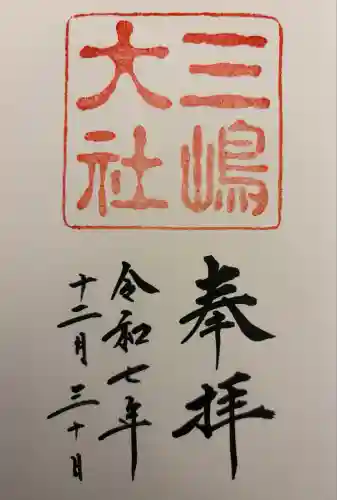 三嶋
大社
奉拝
令和七年
十二月三十日